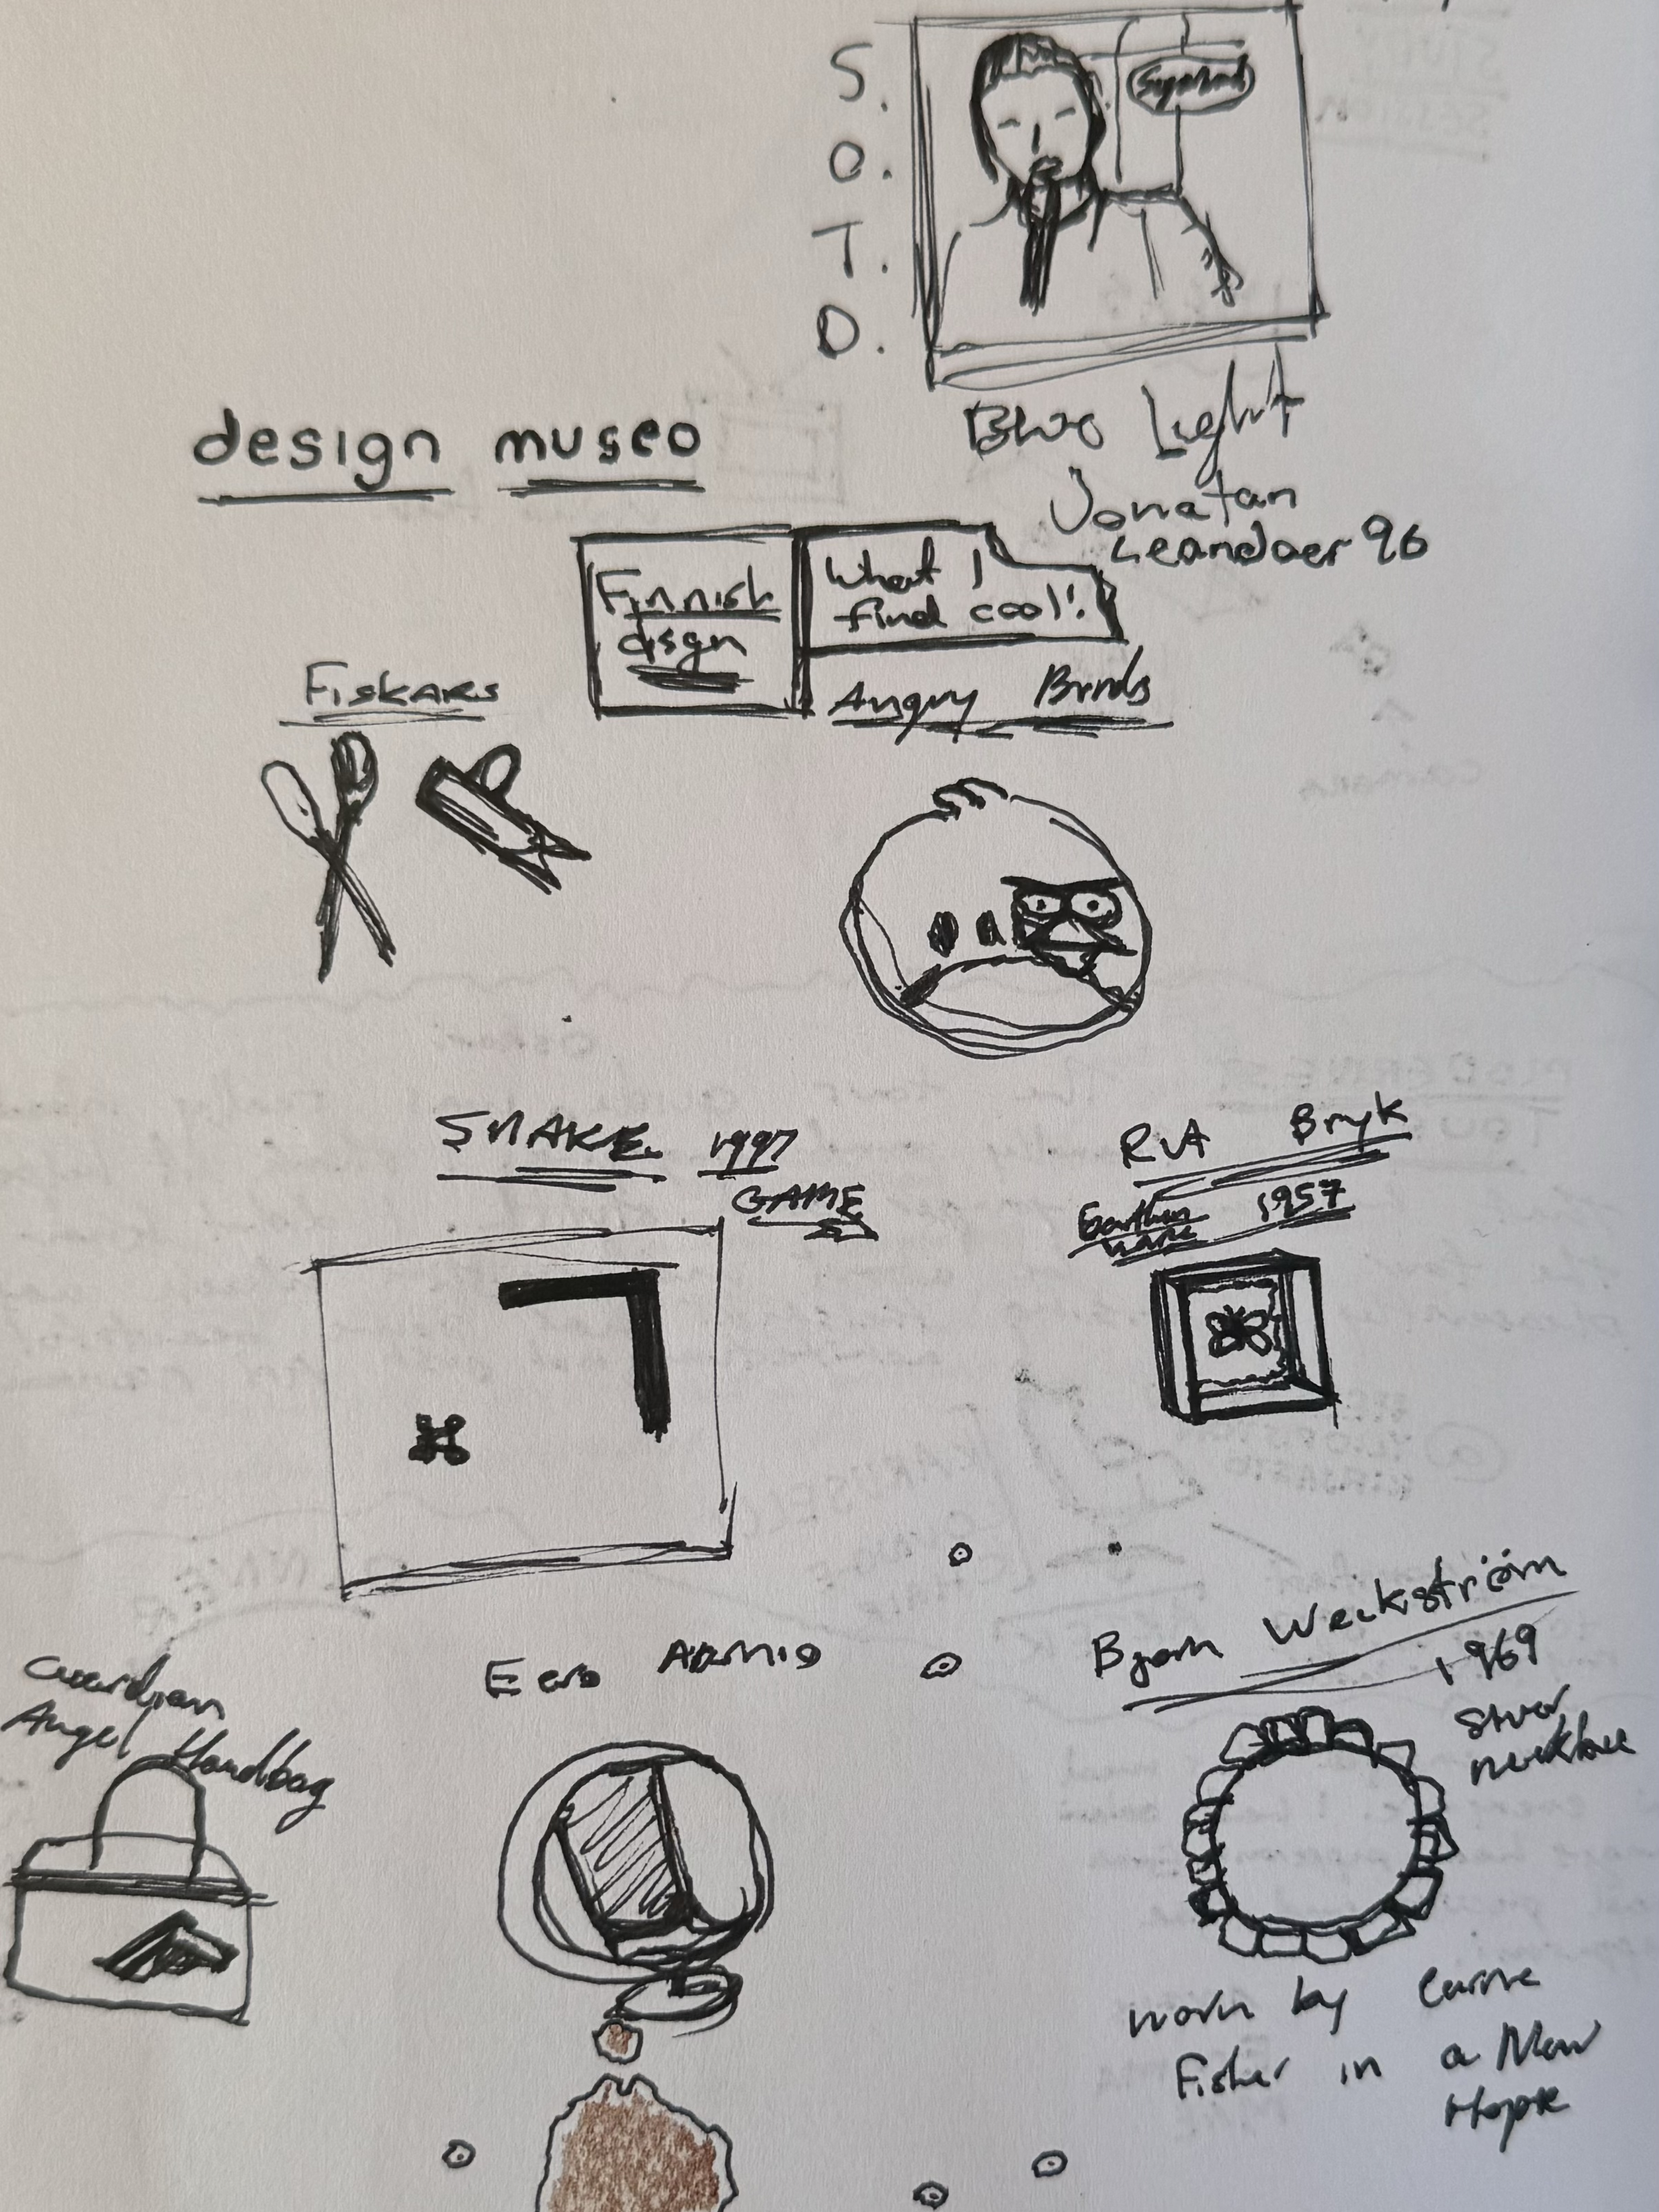 S.
O.
T.
D.
Blue Light
Jonatan
Leandoer 96
design museo
Finnish
disgn
What I
find cool!
Fiskars
Angry Birds
SNAKE 1997
GAME
RUt Bryk
Earthen
ware
1957
Guardian
Angel Handbag
Eero AARNIO
Bjorn Weckström
1969
Silver
necklace
worn by Carrie
Fisher in a New
Hope